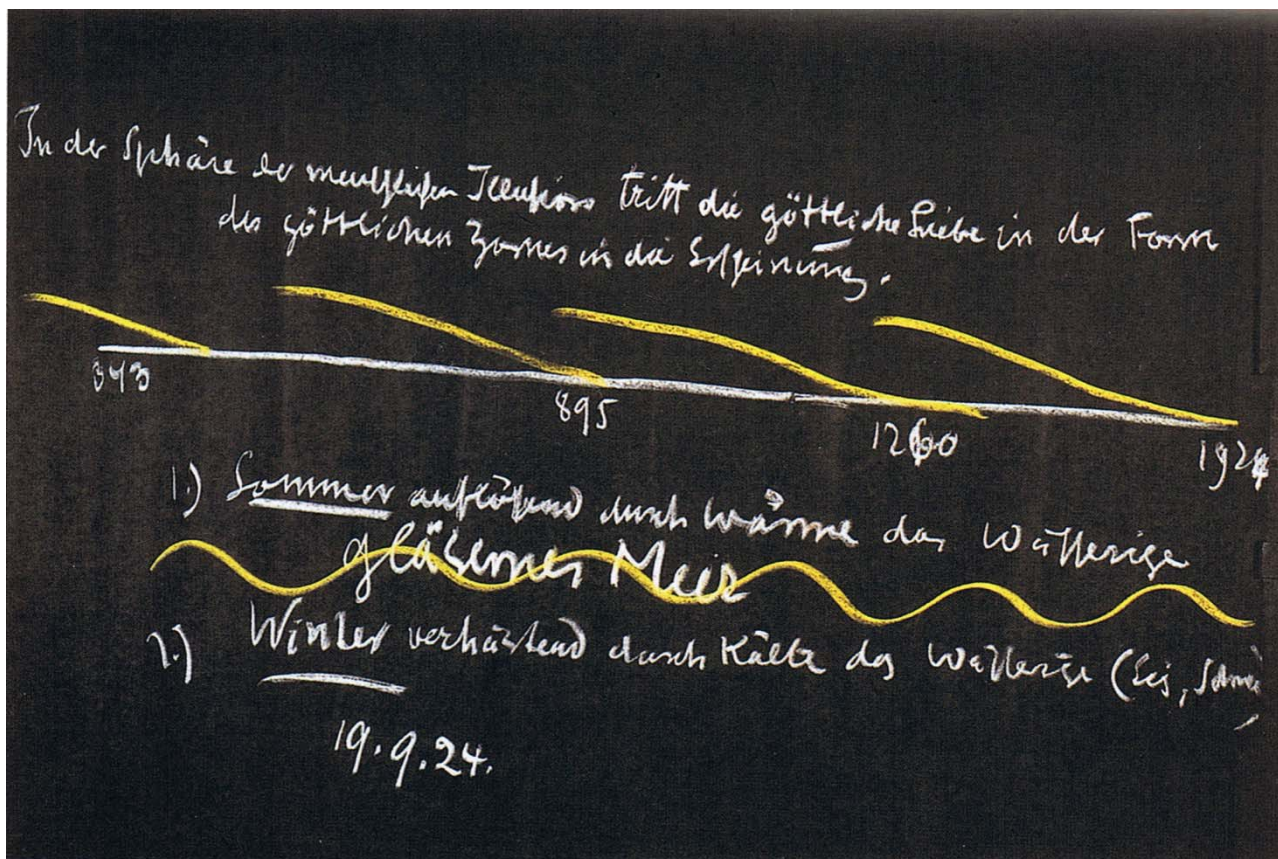 In der Sphäre der menschlichen Illusion tritt die göttliche Liebe in der Form
des göttlichen Zornes in die Erscheinung.
343
895
1260
1924
1.) Sommer auflösend durch Wärme das Wässerige
gläsernes Meer
2.) Winter verhärtend durch Kälte das Wässerige (Eis,
19.9.24.